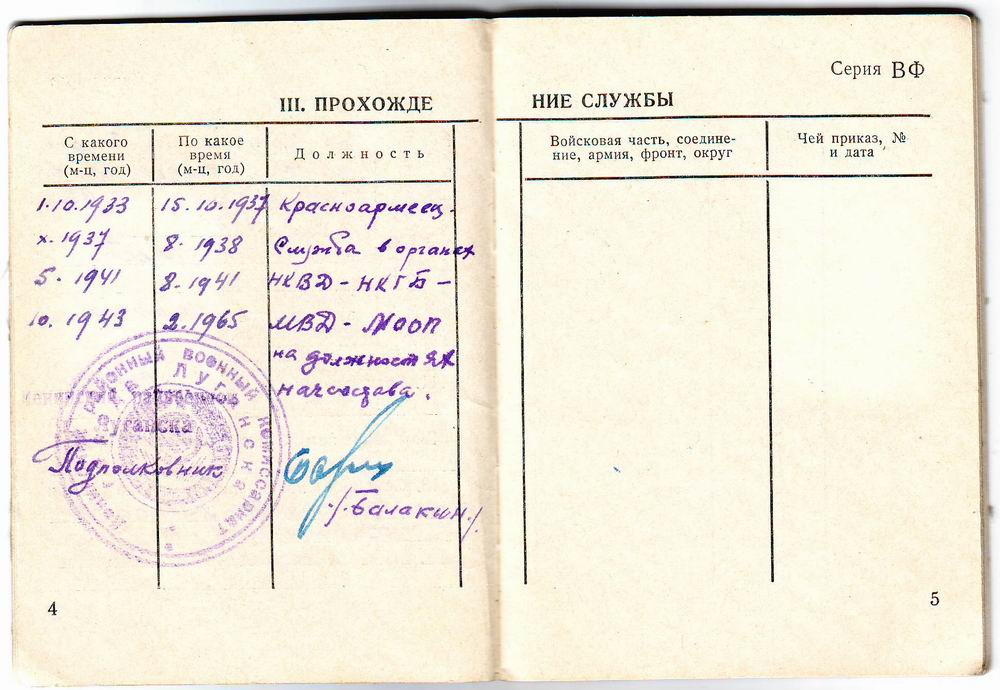 Серия ВФ
III. ПРОХОЖДЕ
НИЕ СЛУЖБЫ
С какого времени (м-ц, год)
По какое время (м-ц, год)
Должность
Войсковая часть, соедине-
ние, армия, фронт, округ
Чей приказ, №
и дата
1.10.1933 15.10.1937 Красноармеец.
X.1937 8.1938 Служба в органах
5.1941 8.1941 НКВД-НКГБ-
10.1943 2.1965 МВД-МООП
на должностях
начсостава.
районный военный комиссариат
Луганска
Луганска
Подполковник
/Балакин/
4
5